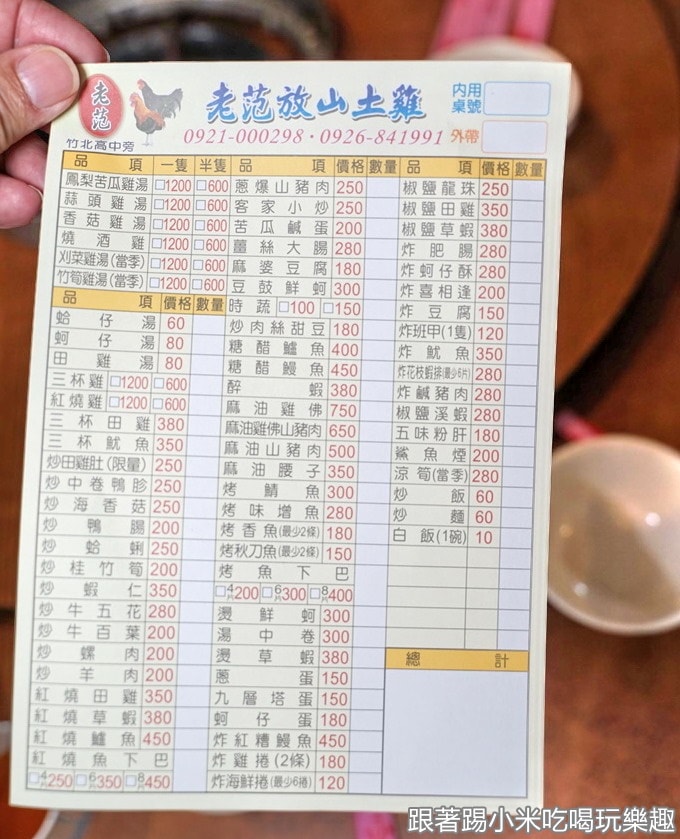 老范
老范放山土雞
內用桌號
竹北高中旁
0921-000298·0926-841991
外帶
品項 一隻 半隻
鳳梨苦瓜雞湯 □1200 □600
蒜頭雞湯 □1200 □600
香菇雞湯 □1200 □600
燒酒雞 □1200 □600
刈菜雞湯(當季) □1200 □600
竹筍雞湯(當季) □1200 □600
品項 價格 數量
蛤仔湯 60
蚵仔湯 80
田雞湯 80
三杯雞 □1200 □600
紅燒雞 □1200 □600
三杯田雞 380
三杯魷魚 350
炒田雞肚(限量) 250
炒中卷鴨胗 250
炒海香菇 250
炒鴨腸 200
炒蛤蜊 250
炒桂竹筍 200
炒蝦仁 350
炒牛五花 280
炒牛百葉 200
炒螺肉 200
炒羊肉 200
紅燒田雞 350
紅燒草蝦 380
紅燒鱸魚 450
紅燒魚下巴
□4片250 □6片350 □8片450
品項 價格 數量
蔥爆山豬肉 250
客家小炒 250
苦瓜鹹蛋 200
薑絲大腸 280
麻婆豆腐 180
豆鼓鮮蚵 300
時蔬 □100 □150
炒肉絲甜豆 180
糖醋鱸魚 400
糖醋鰻魚 450
醉蝦 380
麻油雞佛 750
麻油雞佛山豬肉 650
麻油山豬肉 500
麻油腰子 350
烤鯖魚 300
烤味增魚 280
烤香魚(最少2條) 180
烤秋刀魚(最少2條) 150
烤魚下巴
□4片200 □6片300 □8片400
燙鮮蚵 300
湯中卷 300
燙草蝦 380
蔥蛋 150
九層塔蛋 150
蚵仔蛋 180
炸紅糟鰻魚 450
炸雞捲(2條) 180
炸海鮮捲(最少6捲) 120
品項 價格 數量
椒鹽龍珠 250
椒鹽田雞 350
椒鹽草蝦 380
炸肥腸 280
炸蚵仔酥 280
炸喜相逢 200
炸豆腐 150
炸班甲(1隻) 120
炸魷魚 350
炸花枝蝦排(最少6片) 280
炸鹹豬肉 280
椒鹽溪蝦 280
五味粉肝 180
鯊魚煙 200
涼筍(當季) 280
炒飯 60
炒麵 60
白飯(1碗) 10
總計
跟著踢小米吃喝玩樂趣